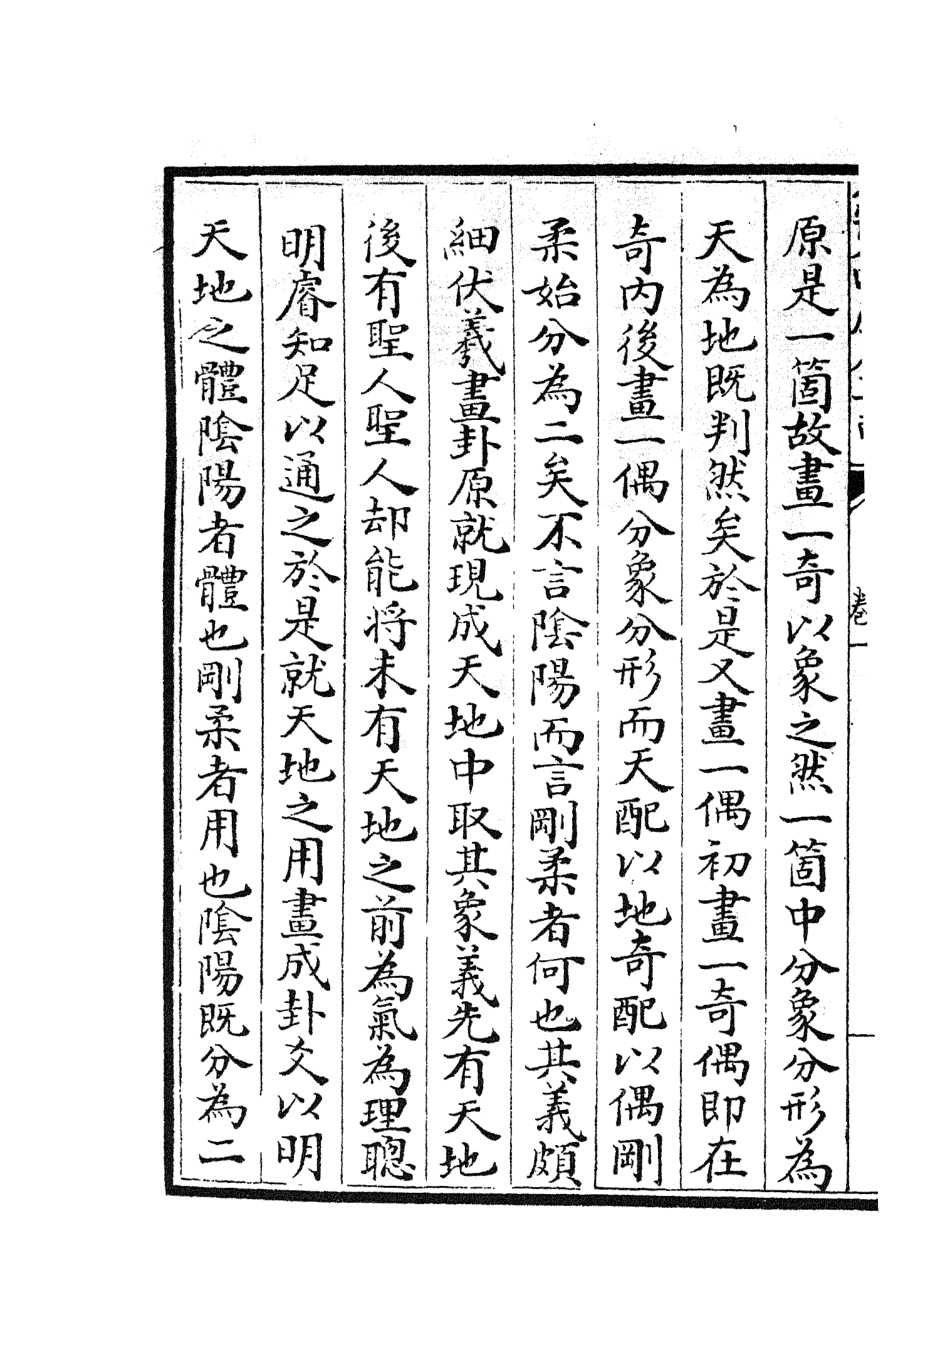 原是一箇故畫一奇以象之然一箇中分象分形為
天為地既判然矣於是又畫一偶初畫一奇偶即在
奇內後畫一偶分象分形而天配以地奇配以偶剛
柔始分為二矣不言陰陽而言剛柔者何也其義頗
細伏羲畫卦原就現成天地中取其象義先有天地
後有聖人聖人却能將未有天地之前為氣為理聰
明睿知足以通之於是就天地之用畫成卦爻以明
天地之體陰陽者體也剛柔者用也陰陽既分為二
卷一